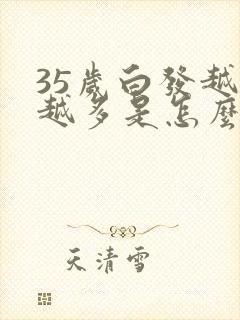 35歲白發越
越多是怎麼
天清雪